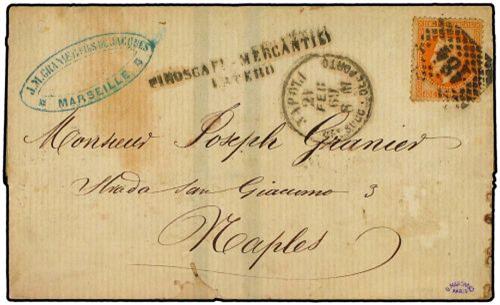 J. M. GRANIER FILS DE JACQUES
MARSEILLE
PIROSCAFI - MERCANTILI
ESTERO
NAPOLI
24
FEB
69
8 M
Monsieur Joseph Granier
Strada San Giacomo 3
Naples